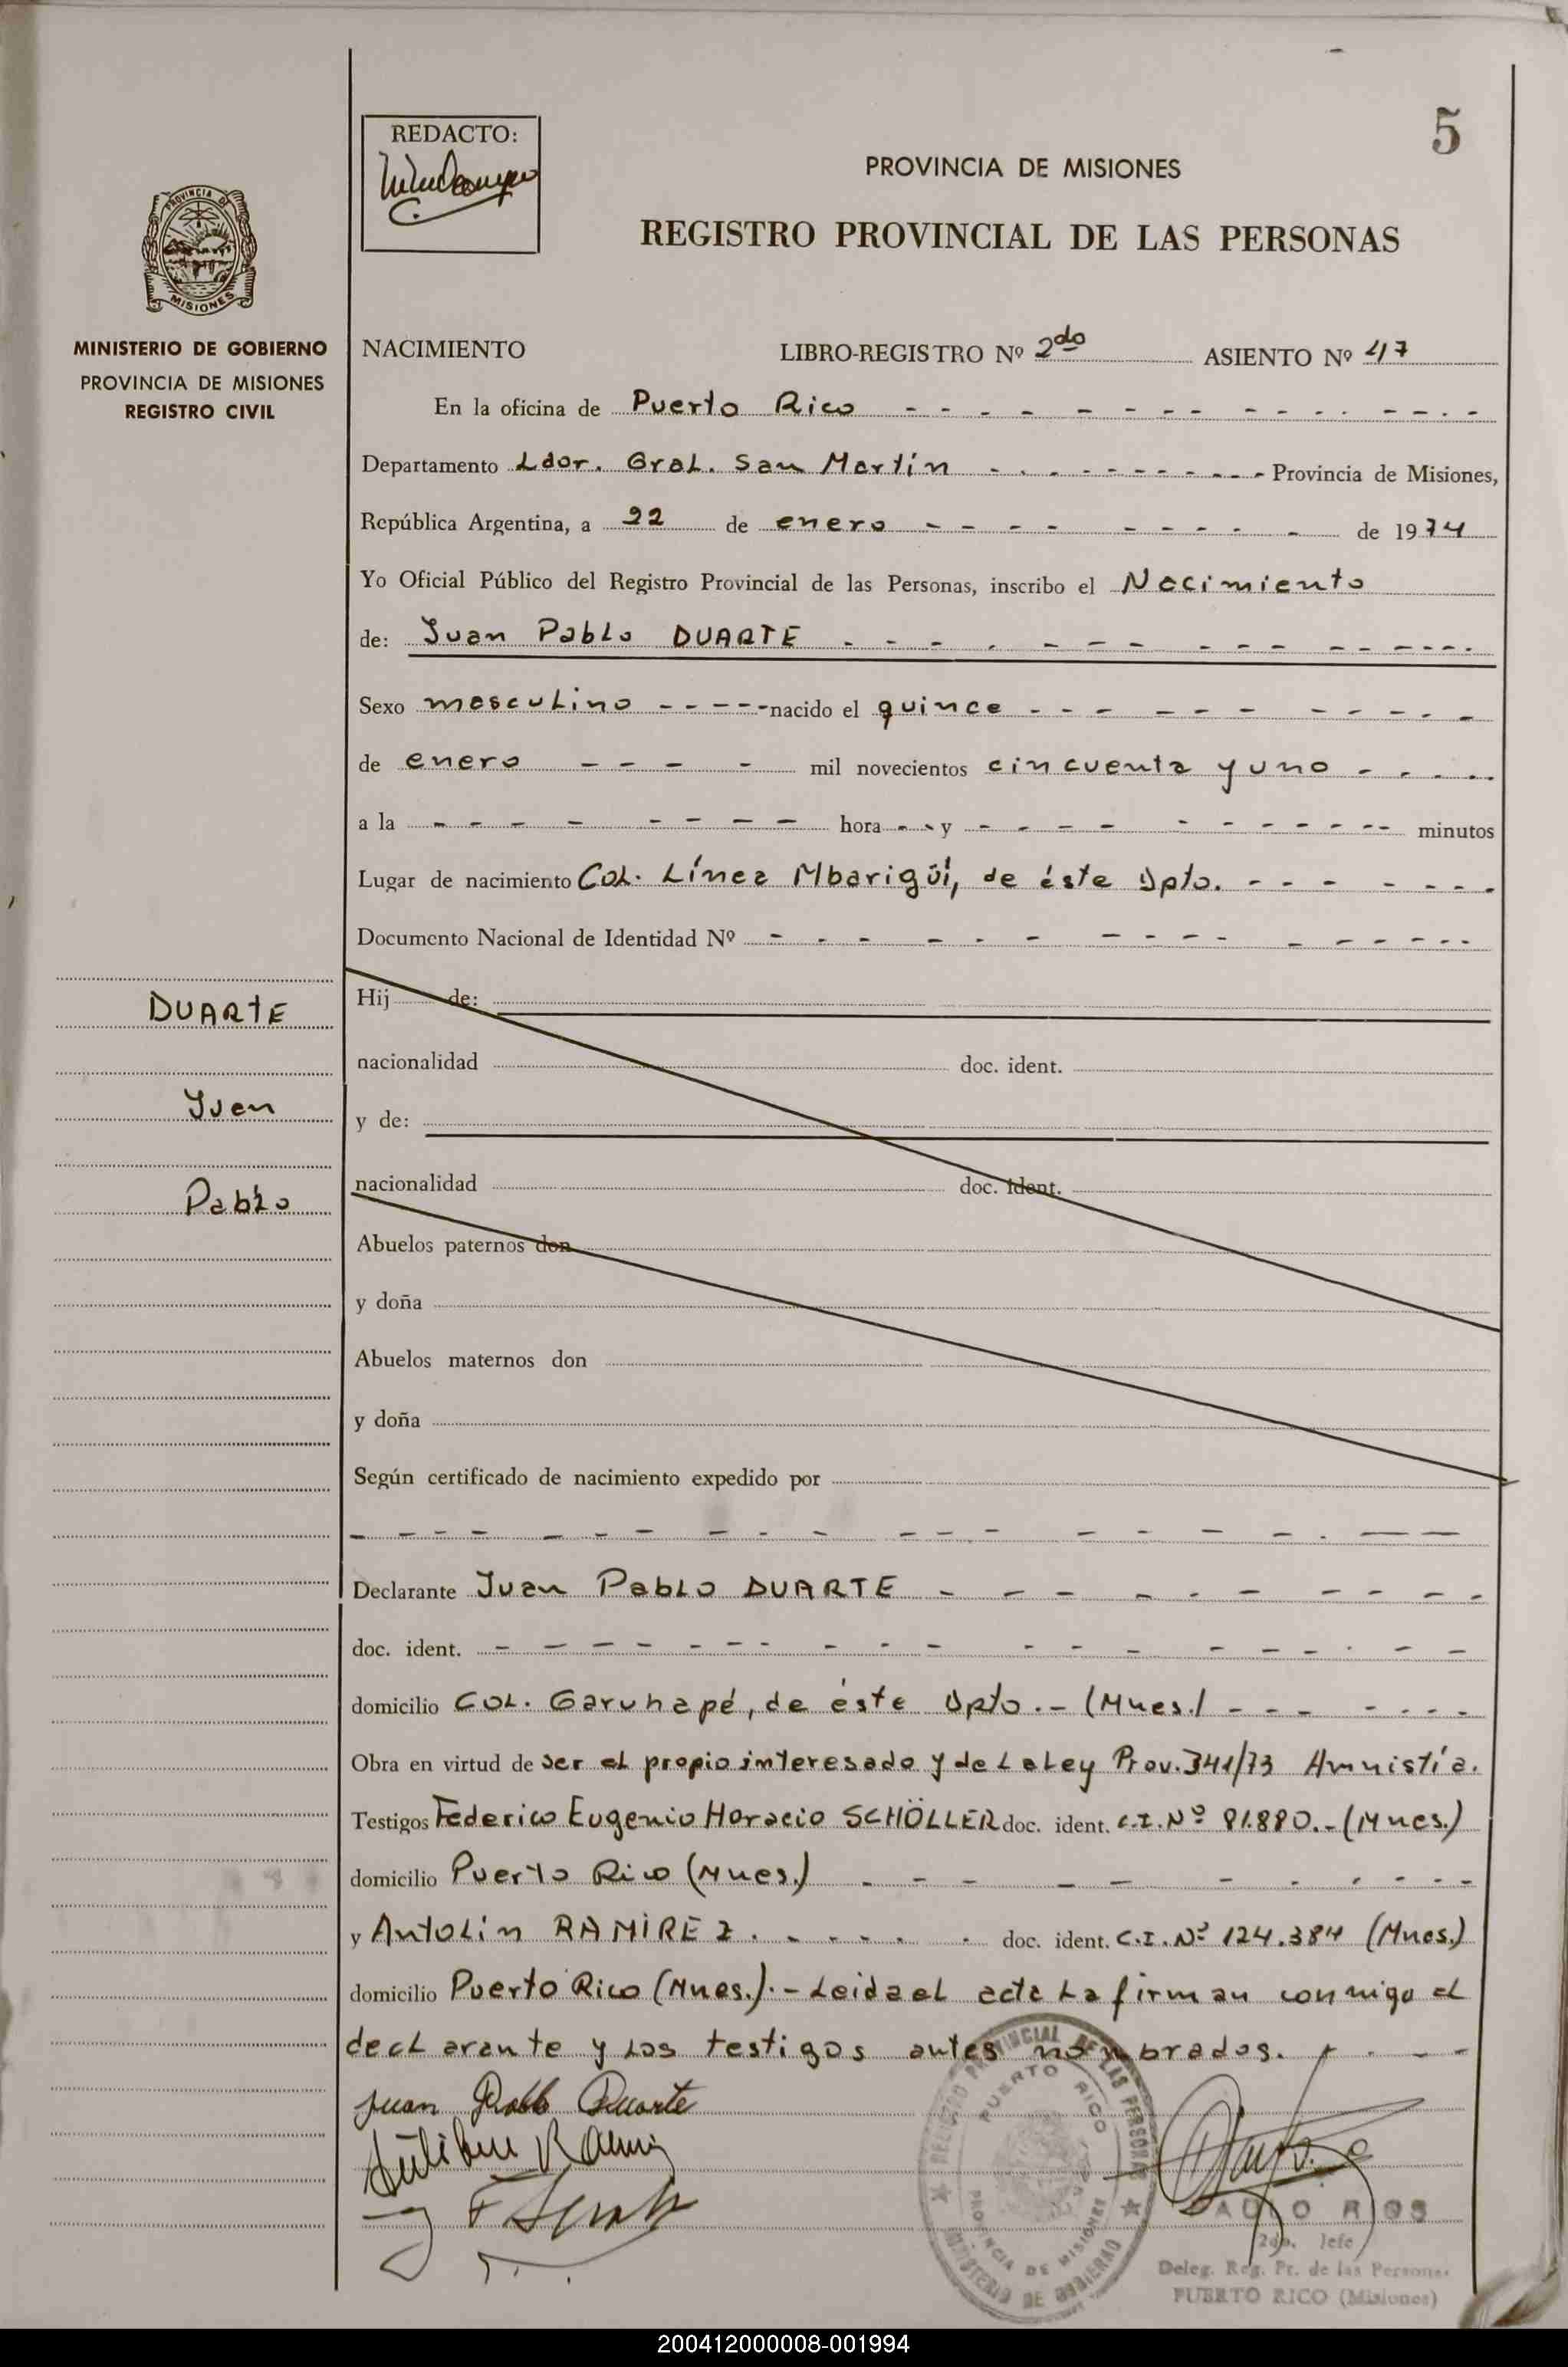 5
REDACTO:
PROVINCIA DE MISIONES
REGISTRO PROVINCIAL DE LAS PERSONAS
PROVINCIA DE
MISIONES
MINISTERIO DE GOBIERNO
PROVINCIA DE MISIONES
REGISTRO CIVIL
NACIMIENTO LIBRO-REGISTRO Nº 2do ASIENTO Nº 47
En la oficina de Puerto Rico
Departamento Ldor. Gral. San Martín Provincia de Misiones,
República Argentina, a 22 de enero de 1974
Yo Oficial Público del Registro Provincial de las Personas, inscribo el Nacimiento
de: Juan Pablo DUARTE
Sexo masculino nacido el quince
de enero mil novecientos cincuenta y uno
a la hora y minutos
Lugar de nacimiento Col. Línea Mbarigüí, de éste Dpto.
Documento Nacional de Identidad Nº
DUARTE
Juan
Pablo
Hij de:
nacionalidad doc. ident.
y de:
nacionalidad doc. ident.
Abuelos paternos don
y doña
Abuelos maternos don
y doña
Según certificado de nacimiento expedido por
Declarante Juan Pablo DUARTE
doc. ident.
domicilio Col. Garuhapé, de éste Dpto.- (Mnes.)
Obra en virtud de ser el propio interesado y de la Ley Prov. 341/73 Amnistía.
Testigos Federico Eugenio Horacio SCHÖLLER doc. ident. C.I. Nº 81.880.- (Mnes.)
domicilio Puerto Rico (Mnes.)
y Antolín RAMIREZ. doc. ident. C.I. Nº 124.384 (Mnes.)
domicilio Puerto Rico (Mnes.).- Leida el acta la firman conmigo el
declarante y los testigos antes nombrados.
Juan Pablo Duarte
REGISTRO PROVINCIAL DE LAS PERSONAS
PUERTO RICO
PROVINCIA DE MISIONES
MINISTERIO DE GOBIERNO
RIOS
2do. Jefe
Deleg. Reg. Pr. de las Personas
PUERTO RICO (Misiones)
200412000008-001994